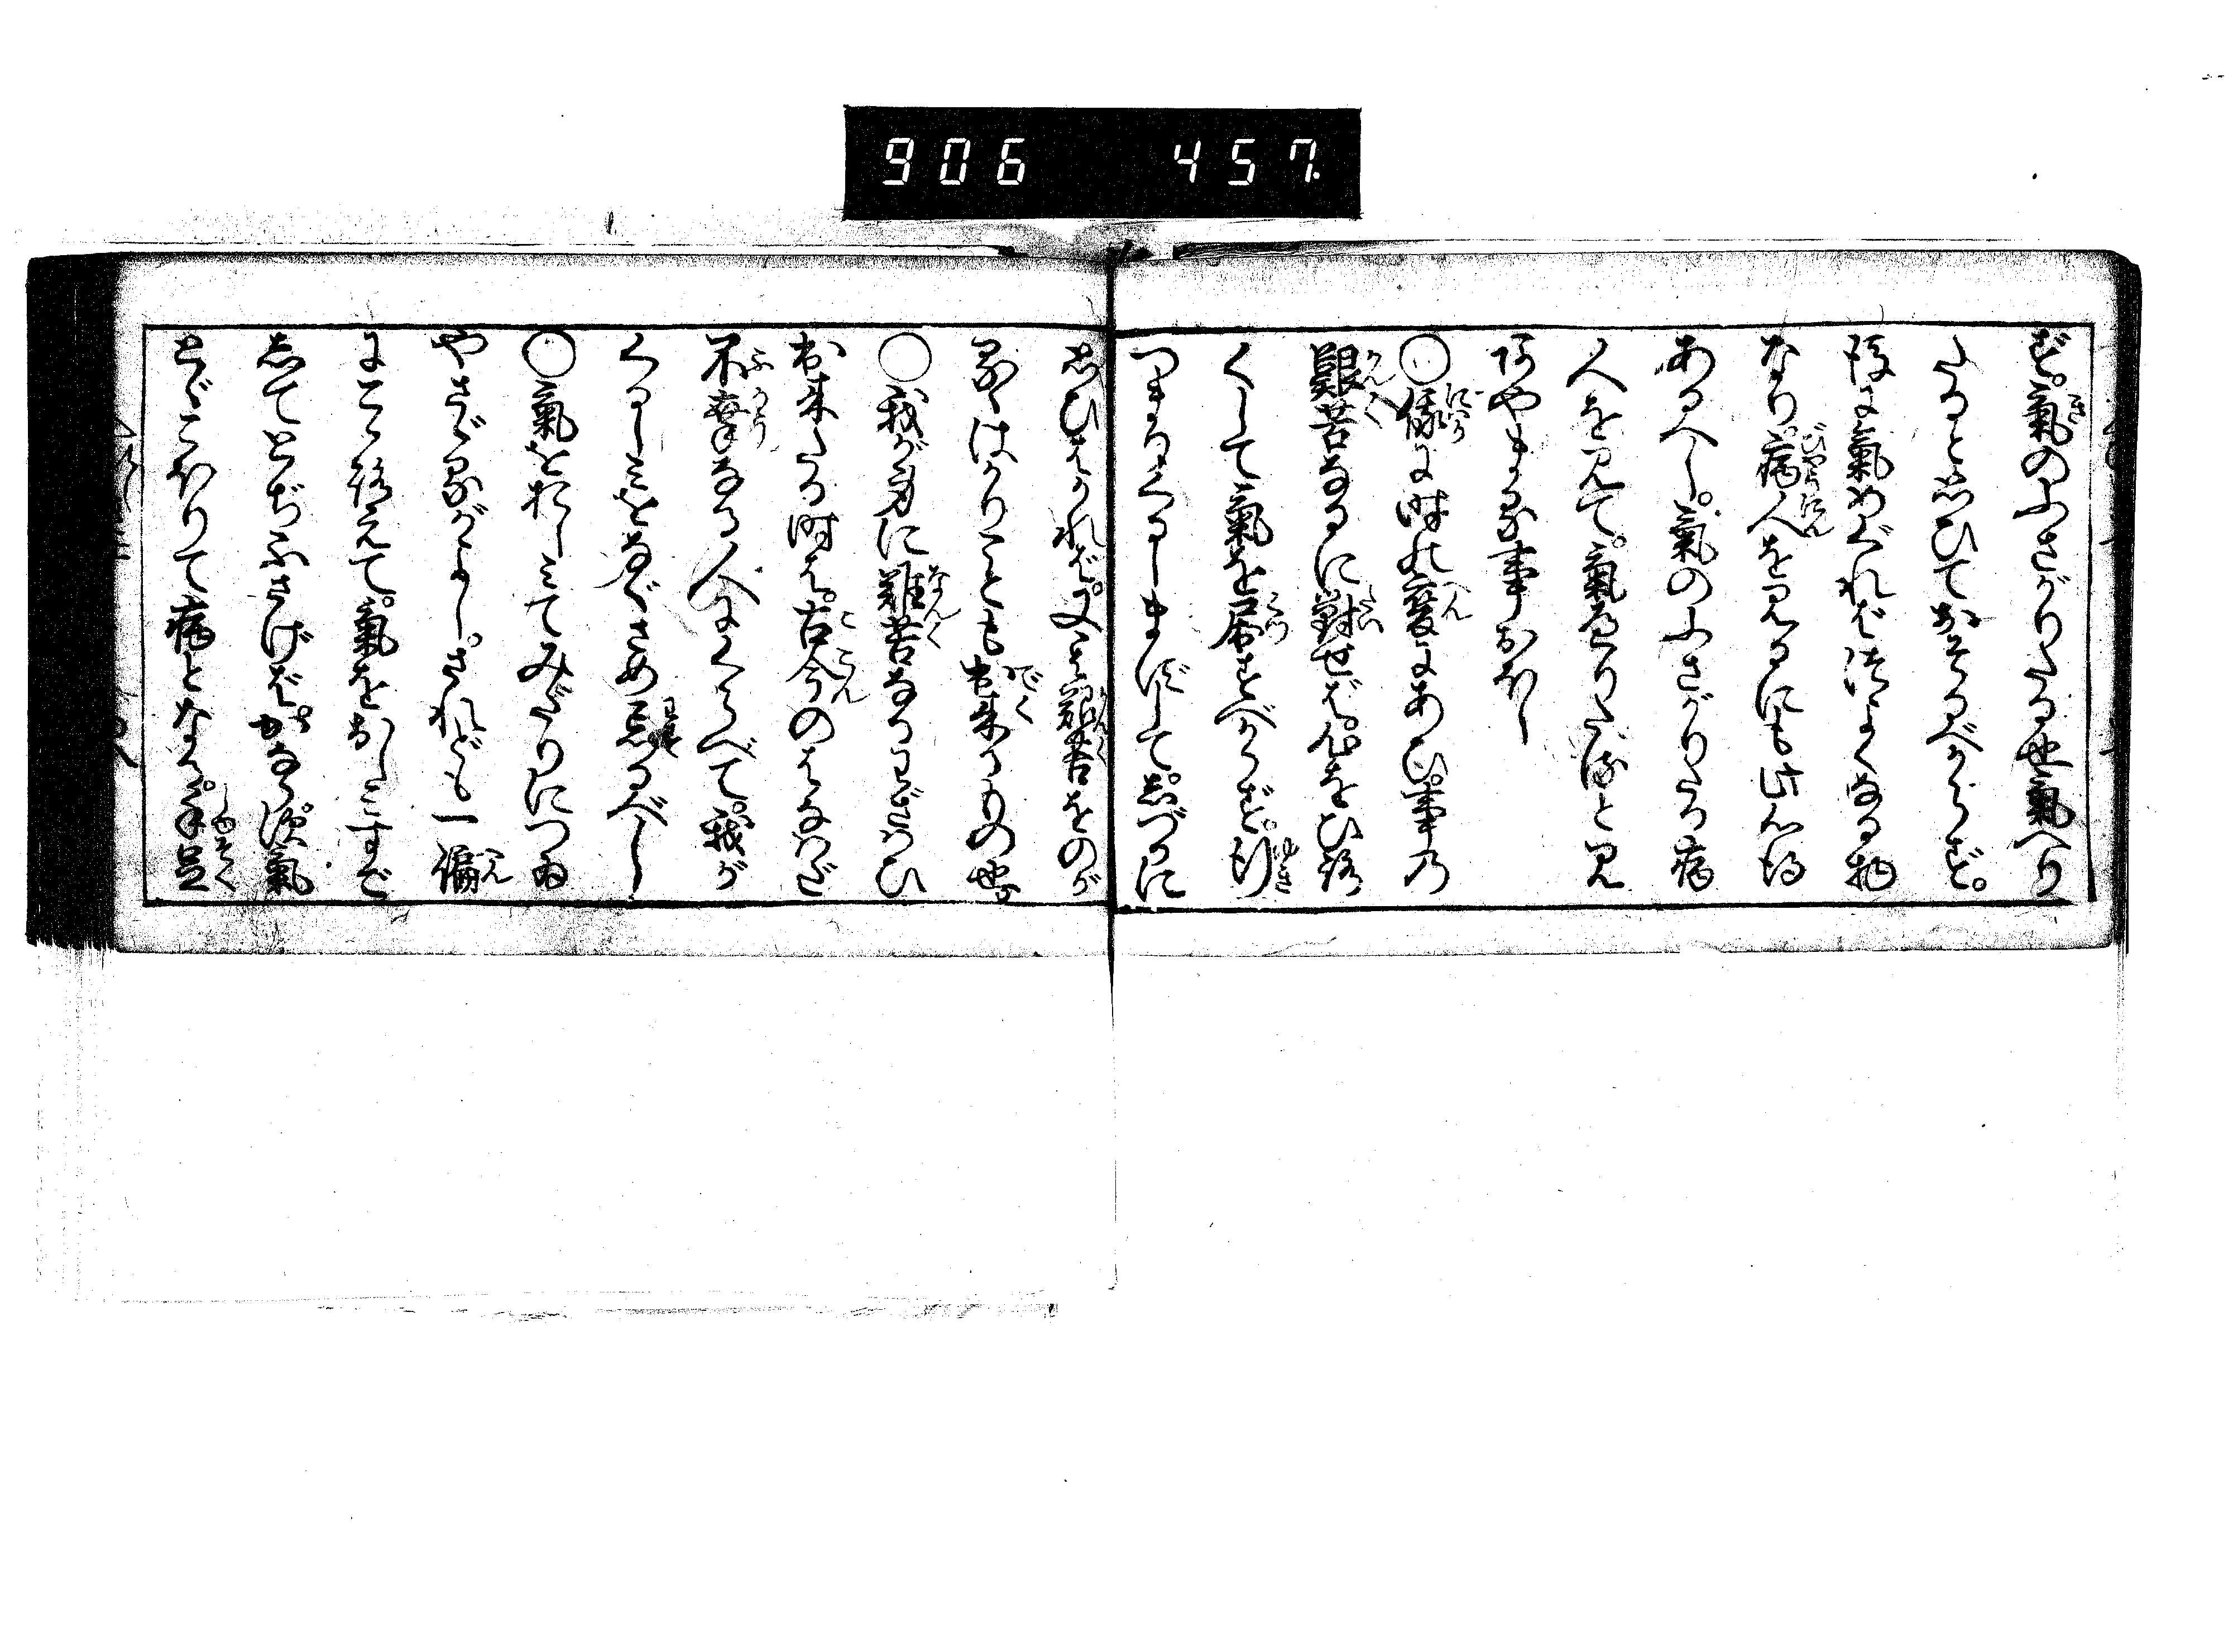 906 457.
ず。氣のふさがりたる也氣へり
たると思ひておそるべからず。
後に氣めぐればつよくなる物
なり。病人を見るにも此心得
あるべし。氣のふさがりたる病
人を見て。氣へりたりと見
あやまる事おほし
○俄に時の變にあひ。事の
艱苦なるに對せば。心をひろ
くして氣を屈すべからず。行
つまりくるしまずして。しづかに
思ひはかれば。又は艱苦をのが
るゝはかりことも出來るもの也
○我が身に難苦なるわざはひ
出來たる時は。古今のはなはだ
不幸なる人にくらべて。我が
くるしみをなぐさめ忘るべし
○氣をおしみてみだりについ
やさゞるがよし。されども一偏
にこゝろえて。氣をおしみすご
してとぢふさげば。かならず氣
とゞこほりて病となる。手足